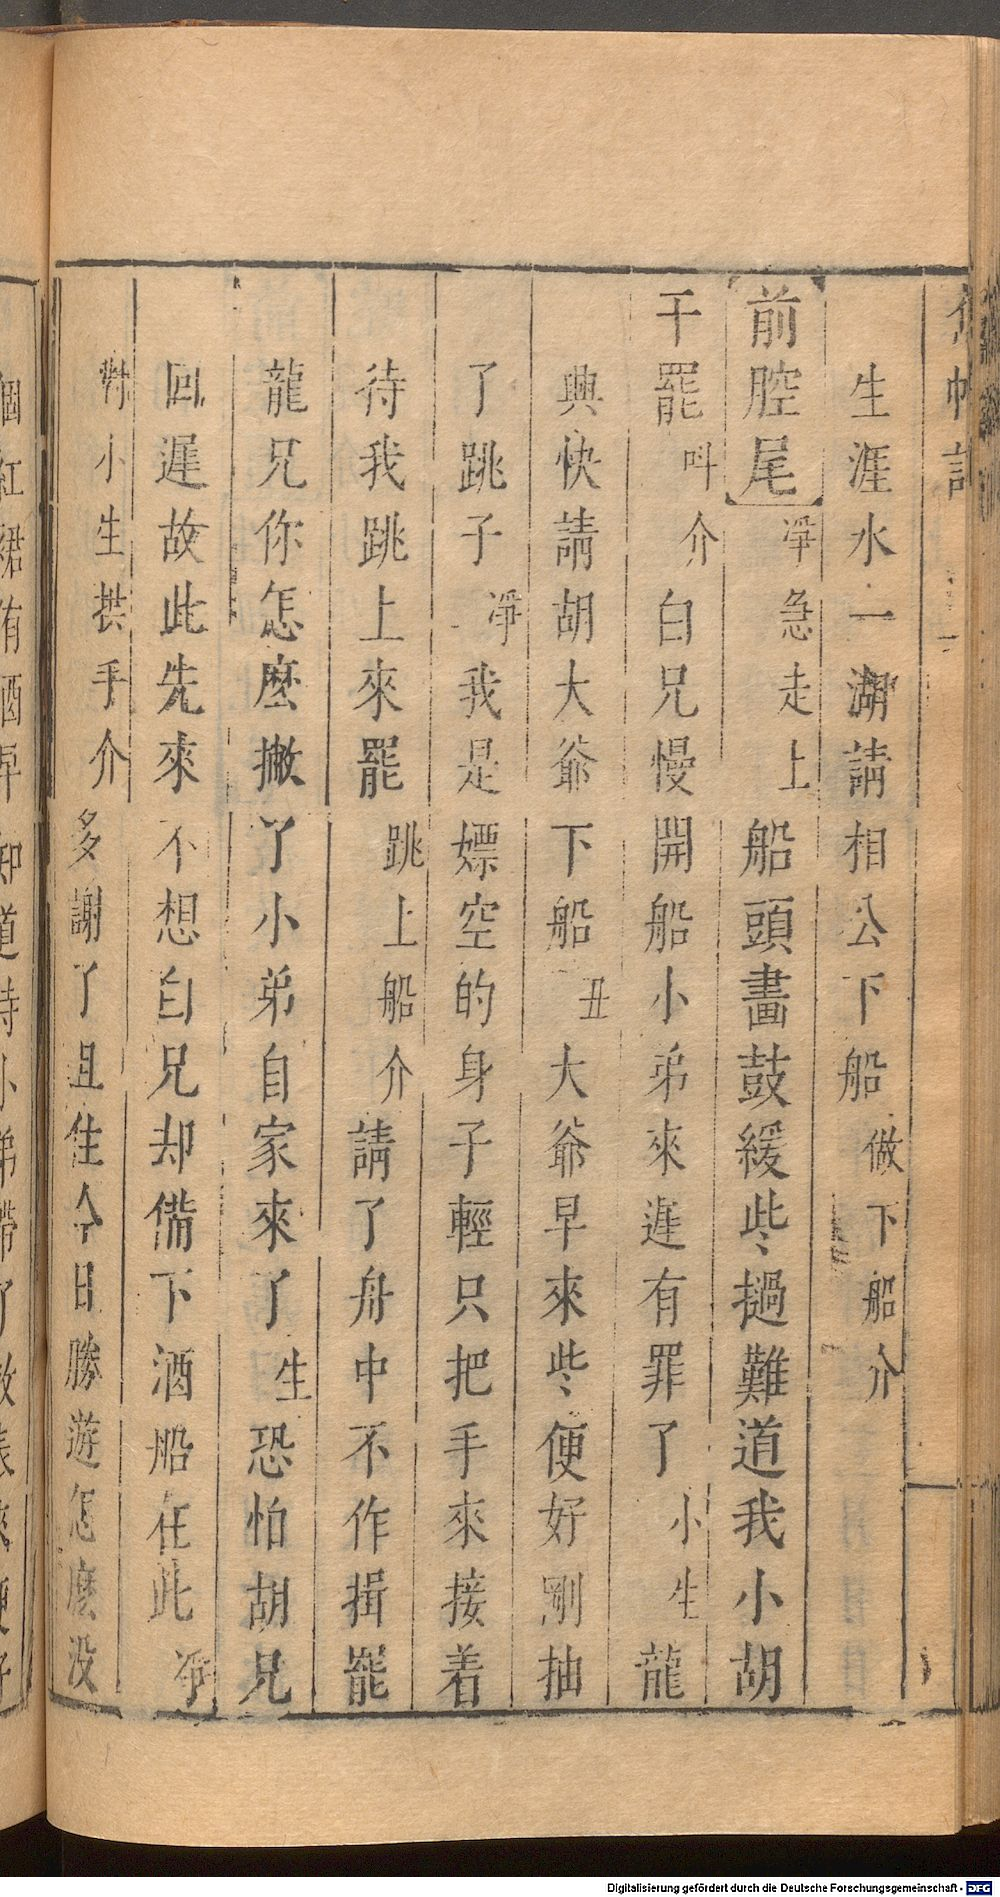 生涯水一湖請相公下船做下船介
前腔尾淨急走上船頭畫鼓緩些撾難道我小胡
干罷叫介白兄慢開船小弟來遲有罪了小生龍
興快請胡大爺下船丑大爺早來些便好剛抽
了跳子淨我是嫖空的身子輕只把手來接着
待我跳上來罷跳上船介請了舟中不作揖罷
龍兄你怎麽撇了小弟自家來了生恐怕胡兄
回遲故此先來不想白兄却備下酒船在此淨
對小生拱手介多謝了且住今日勝遊怎麽没
個紅裙侑酒早知道時小弟帶了
Digitalisierung gefördert durch die Deutsche Forschungsgemeinschaft - DFG